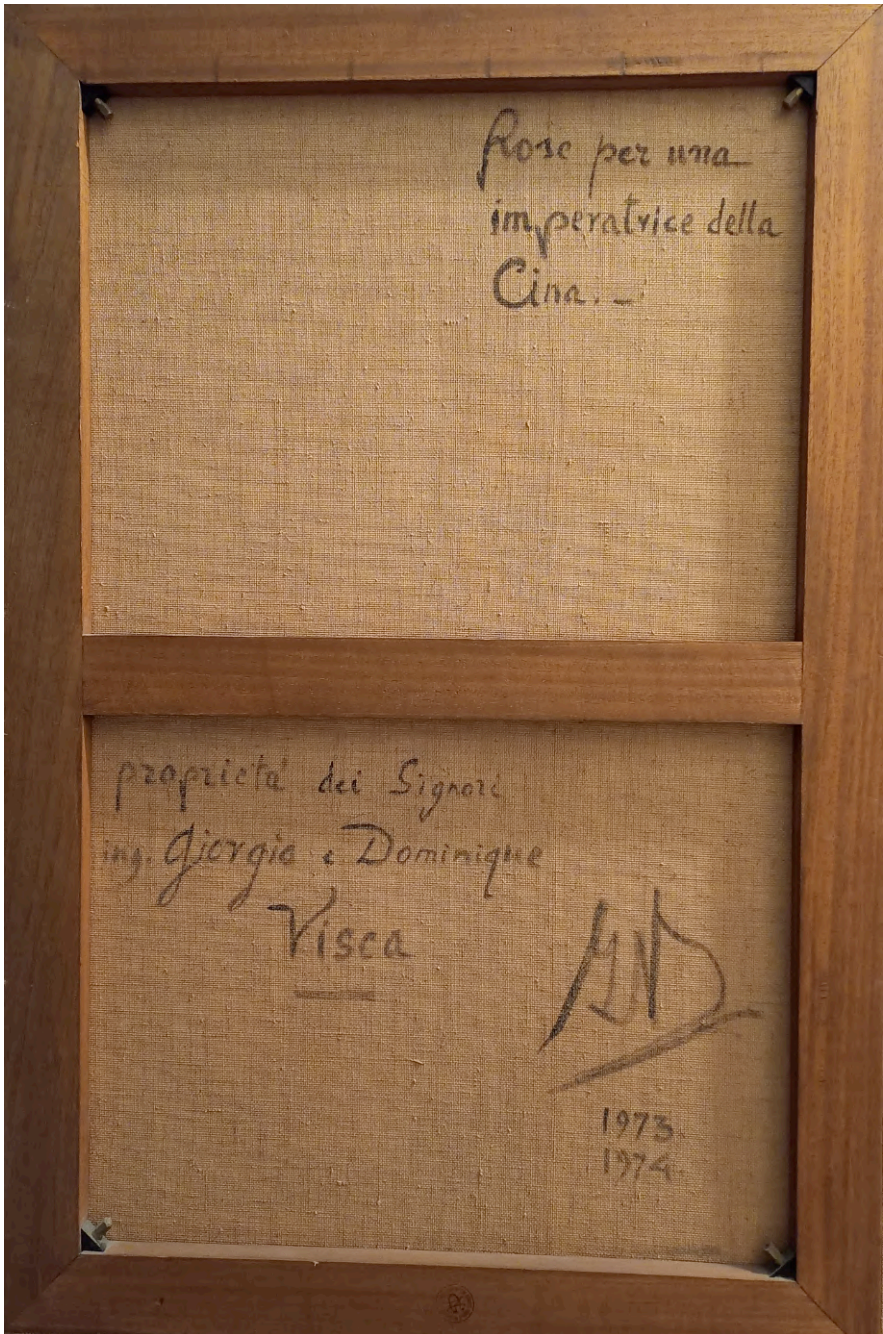 Rose per una
imperatrice della
Cina. _
proprietà dei Signori
ing. Giorgio e Dominique
Visca
1973
1974